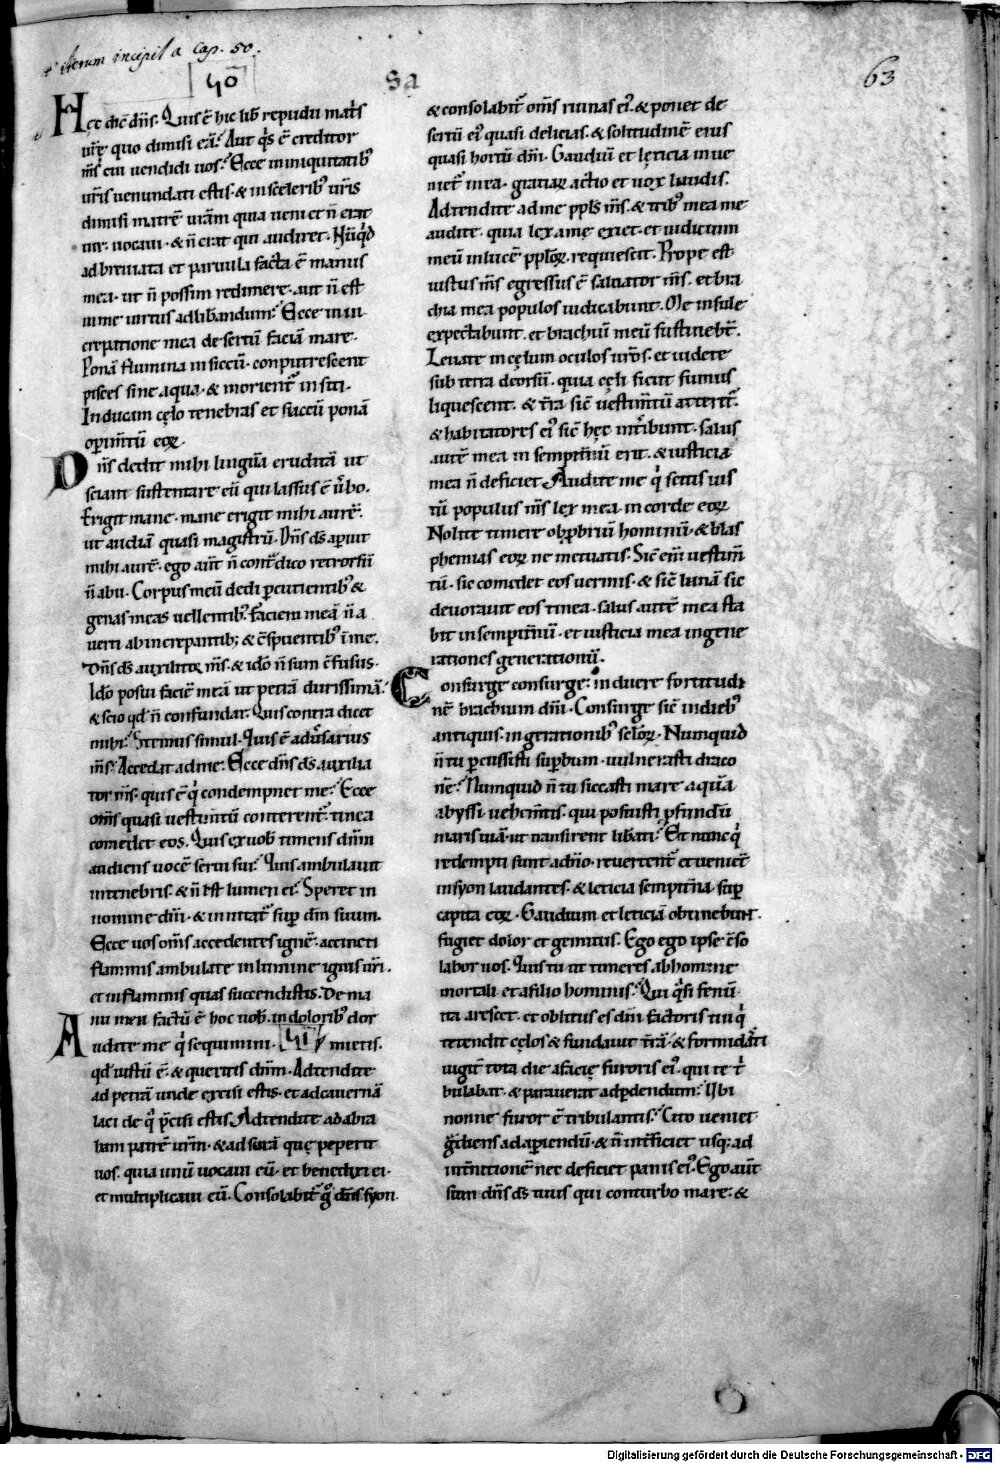 iterum incipit a cap. 50.
50
sa
63
Hęc dic̄ dn̄s. Quis ē hic lib̄ repudii mat̄s
ur̄ę quo dimisi eā? Aut q̇s ē creditor
m̄s cui uendidi uos? Ecce in iniquitatib;
ur̄is uenundati estis. & in scelerib; ur̄is
dimisi matrē urām quia ueni et n̄ erat
uir. uocaui. & n̄ erat qui audiret. Nūq̇d
adbreuiata et paruula facta ē manus
mea. ut n̄ possim redimere. aut n̄ est
in me uirtus ad liƀandum? Ecce in in
crepatione mea desertū faciā mare.
Ponā flumina in siccū. conputrescent
pisces sine aqua. & morient̄ in siti.
Inducam cęlo tenebras et saccū ponā
operim̄tū eoꝝ.
Dn̄s dedit mihi linguā eruditā ut
sciam sustentare eū qui lassus ē ūbo.
Erigit mane. mane erigit mihi aurē.
ut audiā quasi magistrū. Dn̄s ds̄ aperuit
mihi aurē. ego aūt n̄ contͣdico retrorsū
n̄ abii. Corpus meū dedi ꝑcutientib; &
genas meas uellentib;. faciem meā n̄ a
uerti ab increpantib; & c̄spuentib; ī me.
Dn̄s ds̄ auxiliator m̄s. & ido̊ n̄ sum c̄fusus.
Ido̊ posui faciē meā ut petrā durissimā.
& scio qd̄ n̄ confundar. Quis contra dicet
mihi? Stemus simul. Quis ē adūsarius
m̄s? Accedat ad me. Ecce dn̄s ds̄ auxilia
tor m̄s. quis ē q̇ condempnet me? Ecce
om̄s quasi uestim̄tū conterent̄. tinea
comedet eos. Quis ex uob̄ timens dn̄m
audiens uocē serui sui? Quis ambulauit
in tenebris. & n̄ est lumen ei? Speret in
nomine dn̄i. & innitat̄ suꝑ dm̄ suum.
Ecce uos om̄s accedentes ignē. accincti
flammis ambulate in lumine ignis ur̄i.
et in flammis quas succendistis. De ma
nu mea factū ē hoc uob̄. in dolorib; dor
Audite me q̇ sequimini. 51 mietis.
qd̄ iustū ē. & queritis dn̄m. Adtendite
ad petrā unde excisi estis. et ad cauernā
laci de q̇ p̄cisi estis. Adtendite ad abra
ham patrē ur̄m. & ad sarā quę peperit
uos. quia unū uocaui eū. et benedixi ei.
et multiplicaui eū. Consolabit̄ g̊ dn̄s syon.
& consolabit̄ om̄s ruinas ei;. & ponet de
sertū ei; quasi delicias. & solitudinē eius
quasi hortū dn̄i. Gaudiū et lęticia inue
niet̄ in ea. gratiaꝝ actio et uox laudis.
Adtendite ad me ppl̄s m̄s. & trib; mea me
audite. quia lex a me exiet. et iudicium
meū in lucē pploꝝ requiescit. Prope est
iustus m̄s egressus ē saluator m̄s. et bra
chia mea populos iudicabunt. Me insule
expectabunt. et brachiū meū sustinebt̄.
Leuate in cęlum oculos ur̄os. et uidete
sub terra deorsū. quia cęli sicut fumus
liquescent. & tr̄a sic̄ uestim̄tū atteret̄.
& habitatores ei; sic̄ hęc int̄ibunt. salus
autē mea in sempit̄nū erit. & iusticia
mea n̄ deficiet. Audite me q̇ scitis ius
tū populus m̄s lex mea in corde eoꝝ
Nolite timere obprobriū hominū. & blas
phemias eoꝝ ne metuatis. Sic̄ eni̅ uestim̄
tū. sic comedet eos uermis. & sic̄ lanā sic
deuorauit eos tinea. salus autē mea sta
bit in sempit̄nū. et iusticia mea in gene
rationes generationū.
Consurge consurge. induere fortitudi
nē brachium dn̄i. Consurge sic̄ in dieb;
antiquis. in gerationib; seloꝝ. Numquid
n̄ tu ꝑcussisti suꝑbum. uulnerasti draco
nē? Numquid n̄ tu siccasti mare aquā
abyssi uehem̄tis. qui posuisti ꝓfundū
maris uiā. ut transirent libati? Et nunc q̇
redempti sunt a dn̄o. reuertent̄ et uenient̄
in syon laudantes. & leticia sempit̄na suꝑ
capita eoꝝ. Gaudium et leticiā obtinebunt.
fugiet dolor et gemitus. Ego ego ipse c̄so
labor uos. Quis tu ut timeres ab homine
mortali et a filio hominis? Qui q̇si fenū
ita arescet. et oblitus es dn̄i factoris tui q̇
tetendit cęlos & fundauit tr̄ā. & formidasti
iugit̄ tota die a facie furoris ei;. qui te t̄
bulabat. & parauerat ad ꝑdendum? Ubi
nonne furor ē tribulantis? Cito ueniet
gͣdiens ad aꝑiendū. & n̄ int̄ficiet usq; ad
int̄nitionē nec deficiet panis ei;. Ego aūt
sum dn̄s ds̄ tuus qui conturbo mare. &
Digitalisierung gefördert durch die Deutsche Forschungsgemeinschaft - DFG